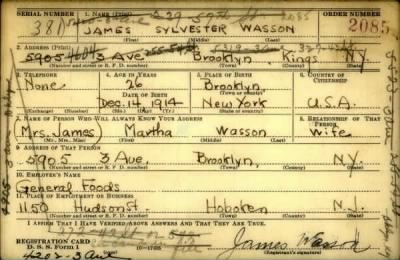 SERIAL NUMBER
1. NAME (Print)
ORDER NUMBER
381
JAMES SYLVESTER WASSON
2085
(First) (Middle) (Last)
2. ADDRESS (Print)
5905 3 Ave Brooklyn, Kings N.Y.
(Number and street or R. F. D. number) (Town) (County) (State)
3. TELEPHONE
4. AGE IN YEARS
5. PLACE OF BIRTH
6. COUNTRY OF CITIZENSHIP
None 26 Brooklyn,
DATE OF BIRTH
(Town or county)
Dec. 14, 1914 New York U.S.A.
(Exchange) (Number) (Mo.) (Day) (Yr.) (State or country)
7. NAME OF PERSON WHO WILL ALWAYS KNOW YOUR ADDRESS
8. RELATIONSHIP OF THAT PERSON
(Mrs. James) Martha Wasson Wife
(Mr., Mrs., Miss) (First) (Middle) (Last)
9. ADDRESS OF THAT PERSON
5905 3 Ave, Brooklyn, N.Y.
(Number and street or R. F. D. number) (Town) (County) (State)
10. EMPLOYER'S NAME
General Foods
11. PLACE OF EMPLOYMENT OR BUSINESS
1150 Hudson St. Hoboken N.J.
(Number and street or R. F. D. number) (Town) (County) (State)
I AFFIRM THAT I HAVE VERIFIED ABOVE ANSWERS AND THAT THEY ARE TRUE.
REGISTRATION CARD
D. S. S. Form 1
James Wasson
(Registrant's signature)
4202-3 Ave